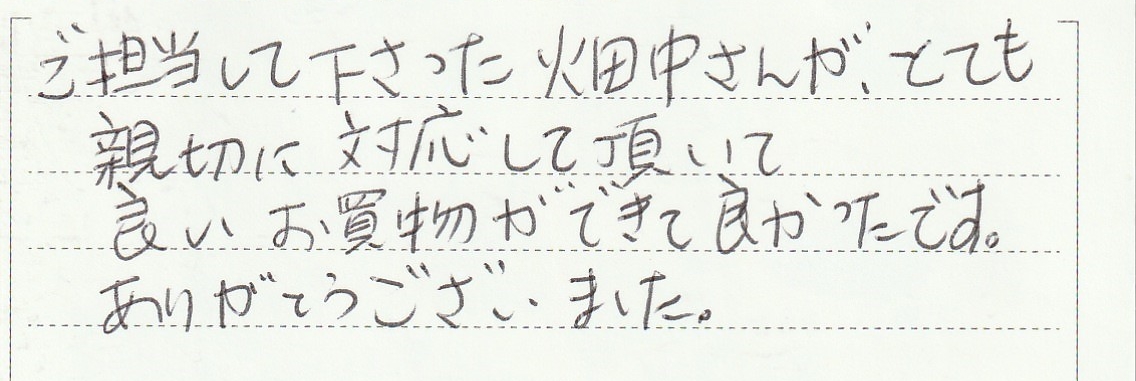 ご担当して下さった畑中さんが、とても
親切に対応して頂いて
良いお買物ができて良かったです。
ありがとうございました。